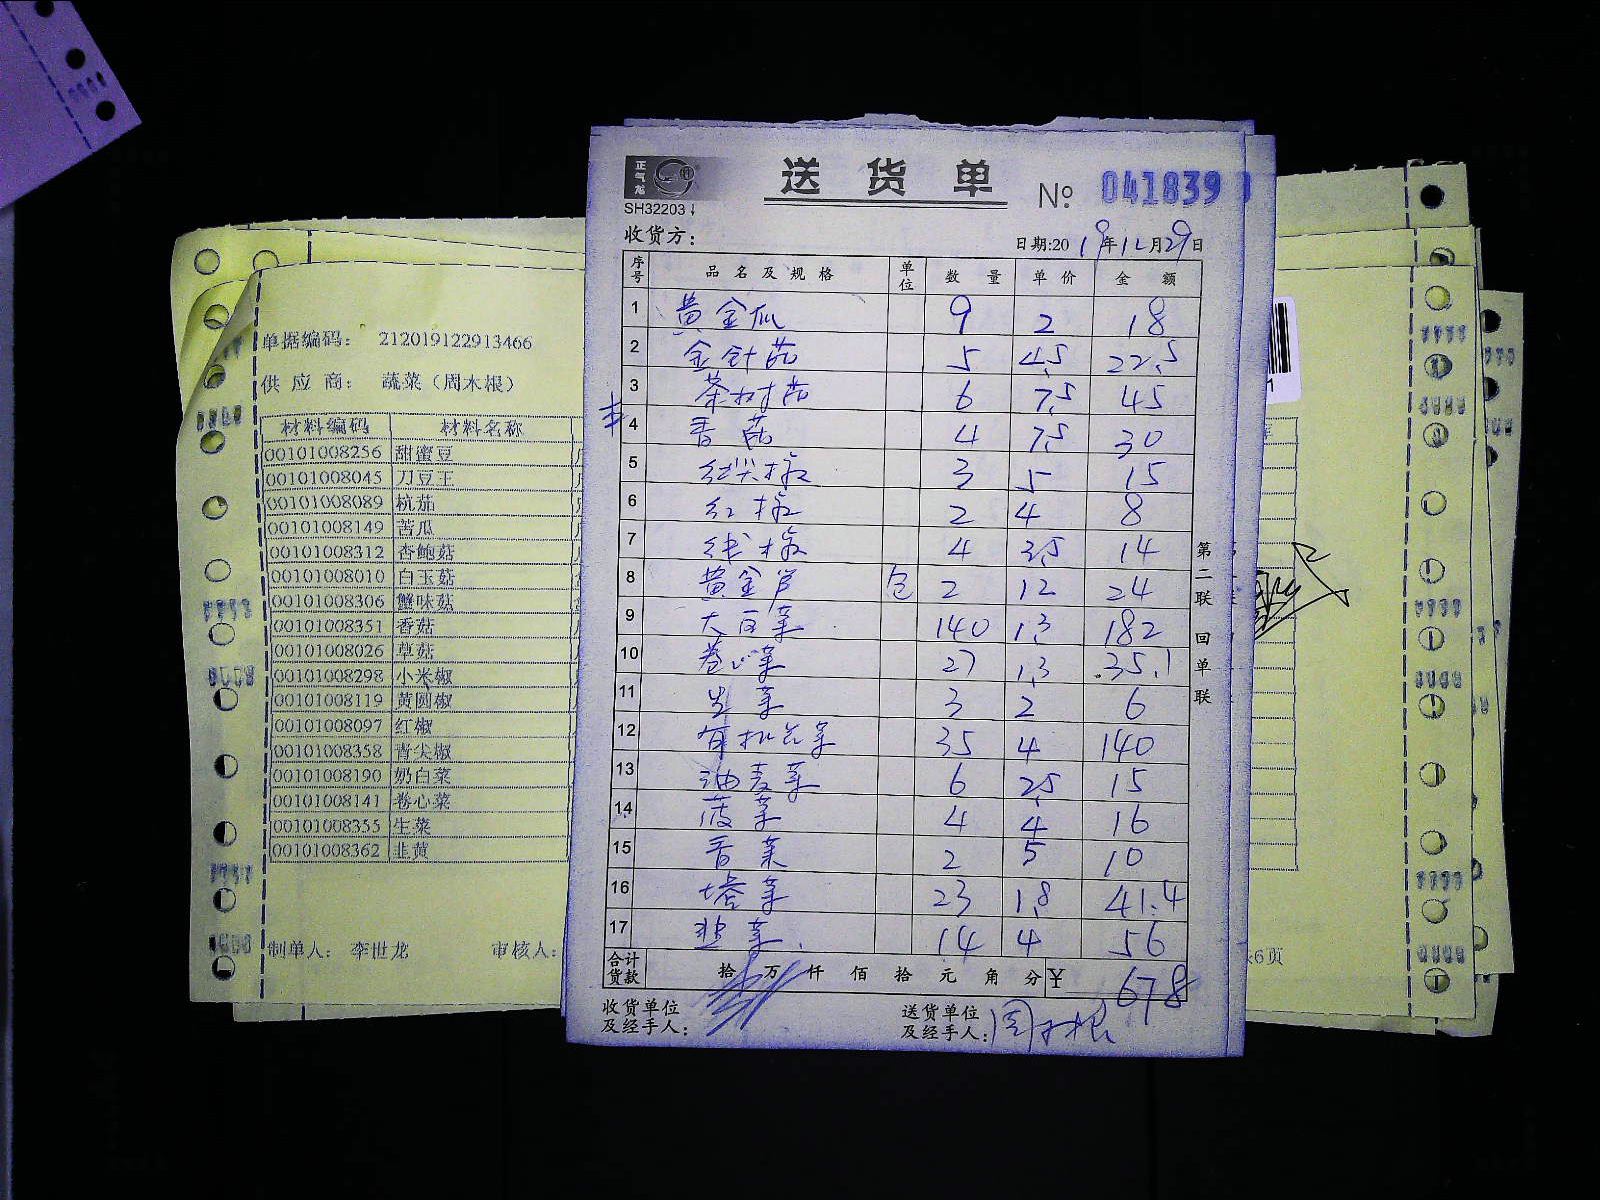 送货单
№ 0418393
SH32203
正气龙
收货方：
日期:2019年12月29日
序号 品名及规格 单位 数量 单价 金额
1 黄金瓜 9 2 18
2 金针菇 5 4.5 22.5
3 茶树菇 6 7.5 45
4 香菇 4 7.5 30
5 红尖椒 3 5 15
6 红椒 2 4 8
7 线椒 4 3.5 14
8 黄金芦 包 2 12 24
9 大白菜 140 1.3 182
10 卷心菜 27 1.3 35.1
11 生菜 3 2 6
12 有机花菜 35 4 140
13 油麦菜 6 2.5 15
14 菠菜 4 4 16
15 香菜 2 5 10
16 塔菜 23 1.8 41.4
17 韭菜 14 4 56
合计货款 拾 万 仟 佰 拾 元 角 分 ¥ 678
收货单位及经手人：
送货单位及经手人：周木根
第二联 回单联
单据编码： 212019122913466
供应商： 蔬菜（周木根）
材料编码 材料名称
00101008256 甜蜜豆
00101008045 刀豆王
00101008089 杭茄
00101008149 苦瓜
00101008312 杏鲍菇
00101008010 白玉菇
00101008306 蟹味菇
00101008351 香菇
00101008026 草菇
00101008298 小米椒
00101008119 黄圆椒
00101008097 红椒
00101008358 青尖椒
00101008190 奶白菜
00101008141 卷心菜
00101008355 生菜
00101008362 韭黄
制单人： 李世龙 审核人：
6页